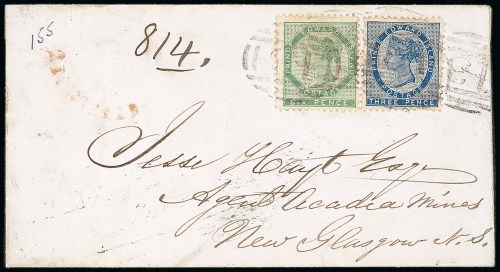 155
814.
PRINCE EDWARD ISLAND
POSTAGE
SIX PENCE
PRINCE EDWARD ISLAND
POSTAGE
THREE PENCE
Jesse Hoyt Esqr
Agent Acadia Mines
New Glasgow N.S.